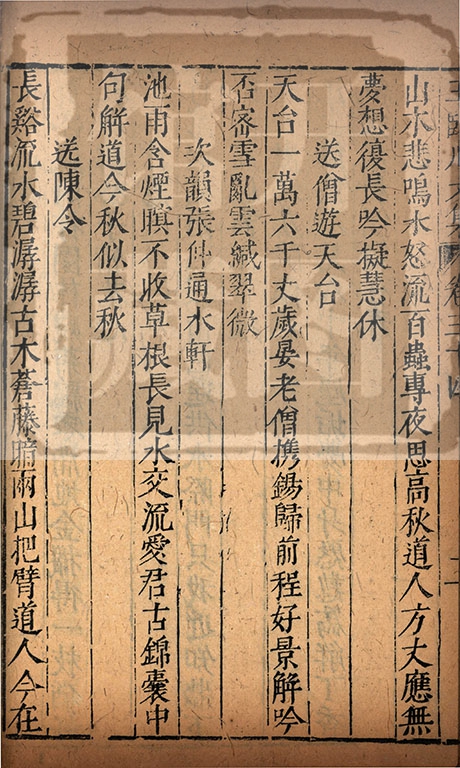 山木悲鳴水怒流百蟲專夜思高秋道人方丈應無
夢想復長吟擬慧休
送僧遊天台
天台一萬六千丈歲晏老僧携錫歸前程好景解吟
否密雪亂雲緘翠微
次韻張仲通水軒
池雨含煙暝不收草根長見水交流愛君古錦囊中
句解道今秋似去秋
送陳令
長谿流水碧潺潺古木蒼藤暗兩山把臂道人今在